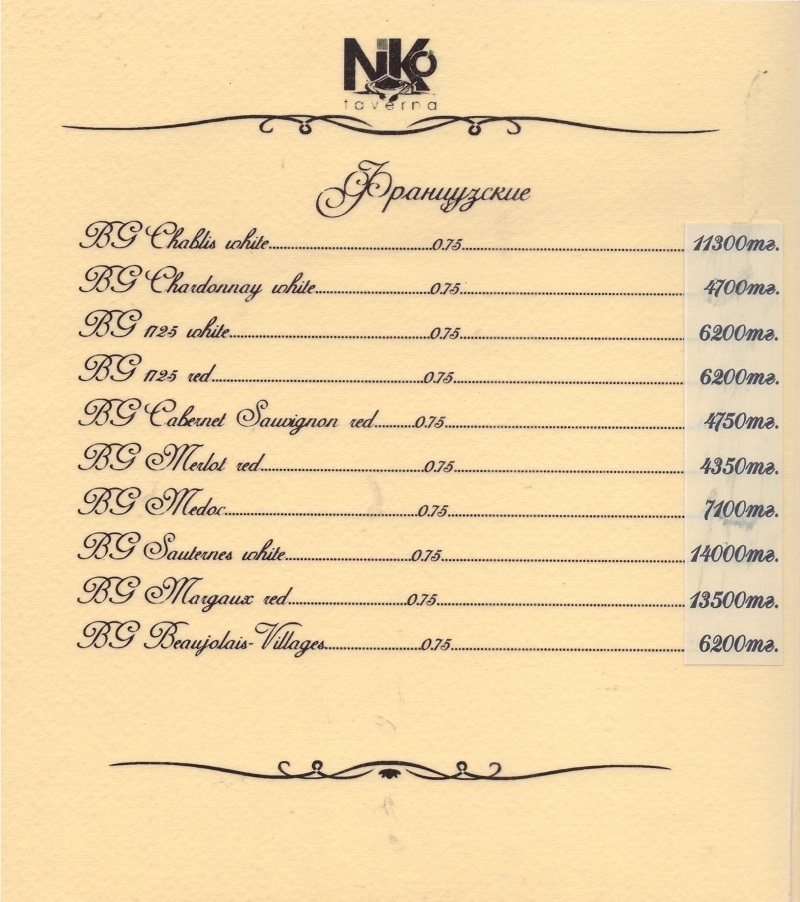 NiKo
taverna
Французские
BG Chablis white........0.75........11300тг.
BG Chardonnay white........0.75........4700тг.
BG 1725 white........0.75........6200тг.
BG 1725 red........0.75........6200тг.
BG Cabernet Sauvignon red........0.75........4750тг.
BG Merlot red........0.75........4350тг.
BG Medoc........0.75........7100тг.
BG Sauternes white........0.75........14000тг.
BG Margaux red........0.75........13500тг.
BG Beaujolais-Villages........0.75........6200тг.